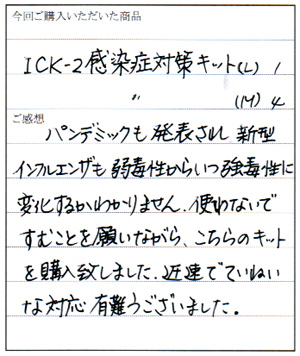 今回ご購入いただいた商品
ICK-2感染症対策キット(L) 1
〃 (M) 4
ご感想
パンデミックも発表され 新型
インフルエンザも弱毒性からいつ強毒性に
変化するかわかりません. 使わないで
すむことを願いながら、こちらのキット
を購入致しました. 迅速でていねい
な対応 有難うございました。